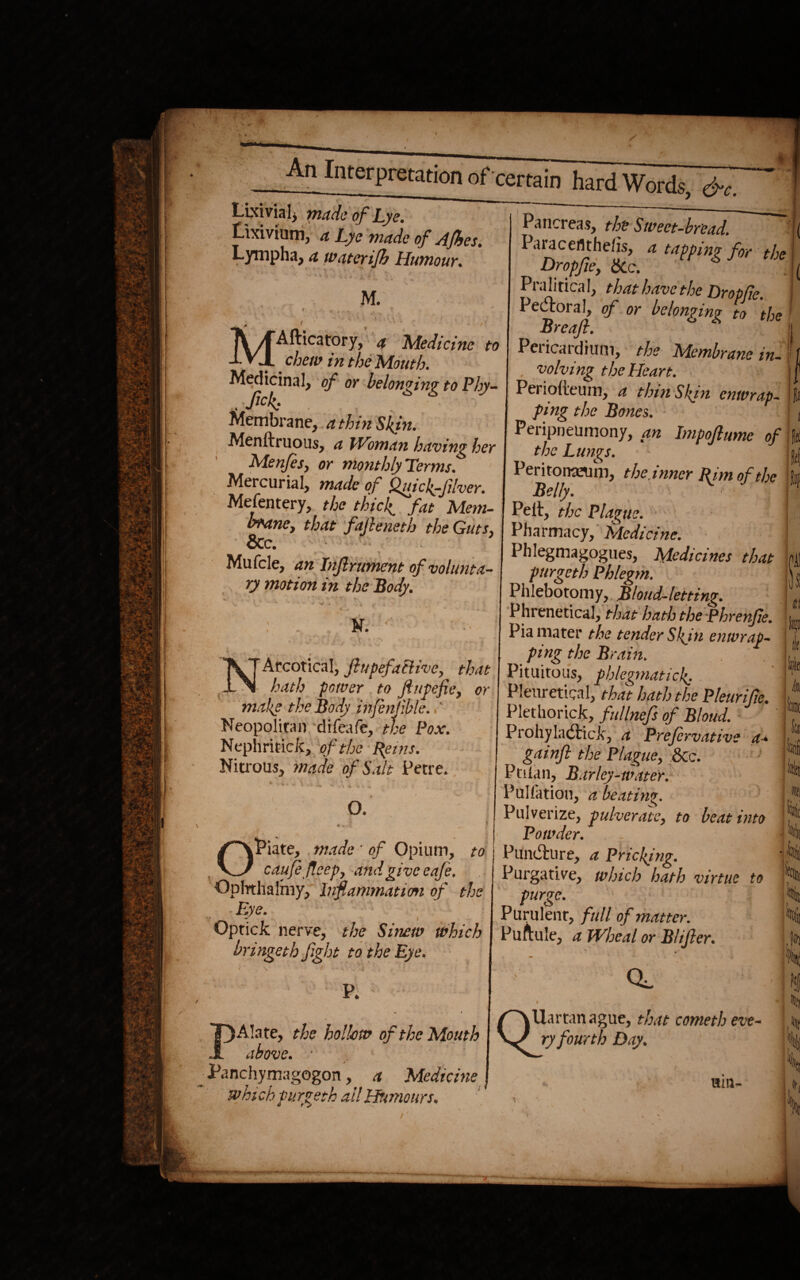 An Interpretation of certain hard Words, &c.
Lixivial, made of Lye.
Lixivium, a Lye made of Aſhes.
Lympha, a wateriſh Humour.
M.
MAſticatory, a Medicine to
chew in the Mouth.
Medicinal, of or belonging to Phy-
ſick.
Membrane, a thin Skin.
Menſtruous, a Woman having her
Menſes, or monthly Terms.
Mercurial, made of Quick-ſilver.
Meſentery, the thick fat Mem-
brane, that faſteneth the Guts,
&c.
Muſcle, an Inſtrument of volunta-
ry motion in the Body.
N.
NArcotical, ſtupefactive, that
hath power to ſtupefie, or
make the Body inſenſible.
Neopolitan diſeaſe, the Pox.
Nephritick, of the Reins.
Nitrous, made of Salt Petre.
O.
OPiate, made of Opium, to
cauſe ſleep, and give eaſe.
Ophthalmy, Inflammation of the
Eye.
Optick nerve, the Sinew which
bringeth ſight to the Eye.
P.
PAlate, the hollow of the Mouth
above.
Panchymagogon, a Medicine
which purgeth all Humours.
Pancreas, the Sweet-bread.
Paracenthesis, a tapping for the
Dropſie, &c.
Pralitical, that have the Dropſie.
Pectoral, of or belonging to the
Breaſt.
Pericardium, the Membrane in-
volving the Heart.
Perioſteum, a thin Skin enwrap-
ping the Bones.
Peripneumony, an Impoſtume of
the Lungs.
Peritonæum, the inner Rim of the
Belly.
Peſt, the Plague.
Pharmacy, Medicine.
Phlegmagogues, Medicines that
purgeth Phlegm.
Phlebotomy, Bloud-letting.
Phrenetical, that hath the Phrenſie.
Pia mater the tender Skin enwrap-
ping the Brain.
Pituitous, phlegmatick.
Pleuretical, that hath the Pleuriſie.
Plethorick, fullneſs of Bloud.
Prohylactick, a Preſervative a-
gainſt the Plague, &c.
Ptiſan, Barley-water.
Pulſation, a beating.
Pulverize, pulverate, to beat into
Powder.
Puncture, a Pricking.
Purgative, which hath virtue to
purge.
Purulent, full of matter.
Puſtule, a Wheal or Bliſter.
Q.
QUartan ague, that cometh eve-
ry fourth Day.
uin-